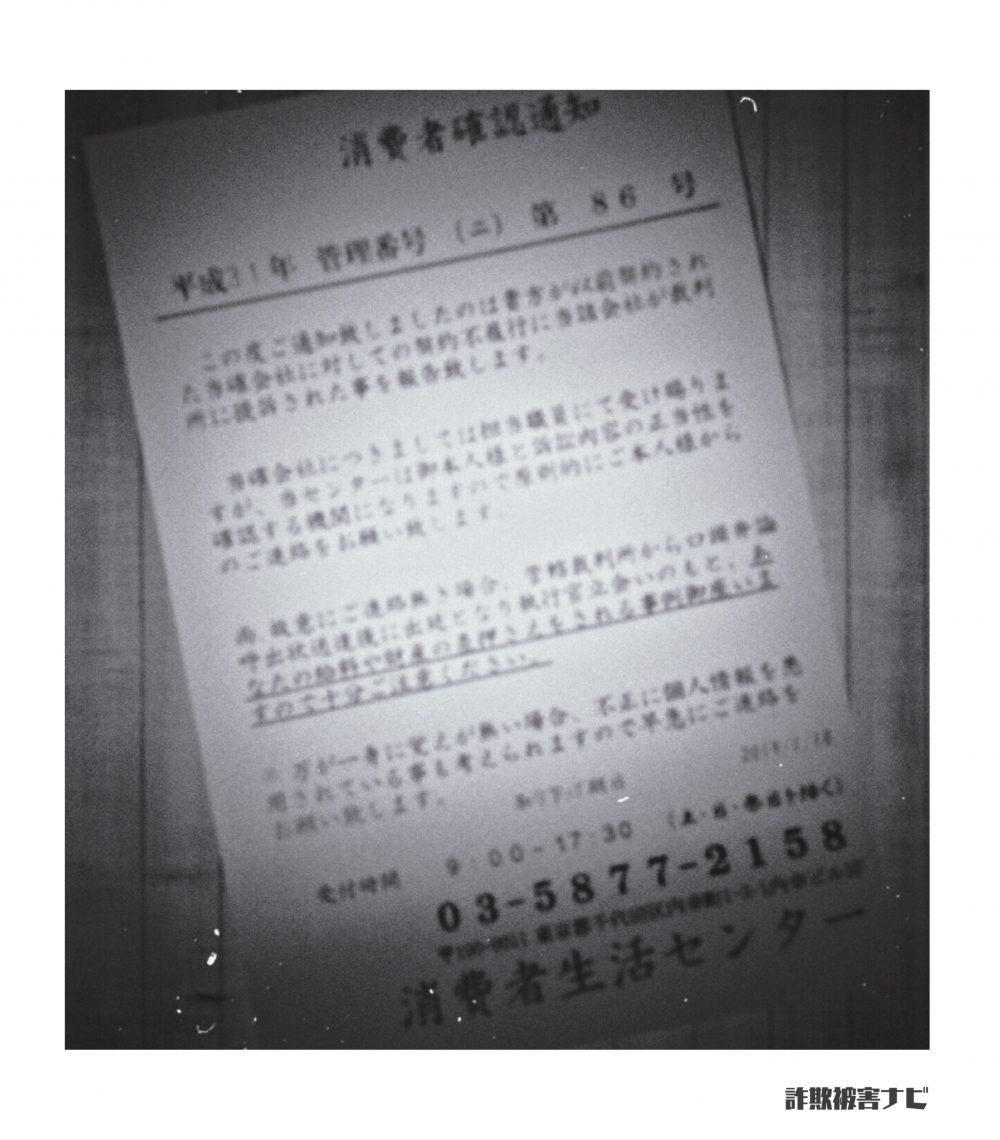 消費者確認通知
平成31年 管理番号 (ニ) 第 86 号
この度ご通知致しましたのは貴方が以前契約され
た当確会社に対しての契約不履行に当該会社が裁判
所に提訴された事を報告致します。
当確会社につきましては担当職員にて受け賜りま
すが、当センターは御本人様と訴訟内容の正当性を
確認する機関になりますので原則的にご本人様から
のご連絡をお願い致します。
尚、故意にご連絡無き場合、管轄裁判所から口頭弁論
呼出状送達後に出廷となり執行官立会いのもと、あ
なたの給料や財産の差押さえをされる事例御座いま
すので十分ご注意ください。
万が一身に覚えが無い場合、不正に個人情報を悪
用されている事も考えられますので早急にご連絡を
お願い致します。
取り下げ期日
受付時間 9:00-17:30 (土・日・祭日を除く)
03-5877-2158
東京都千代田区内幸町
消費者生活センター
詐欺被害ナビ